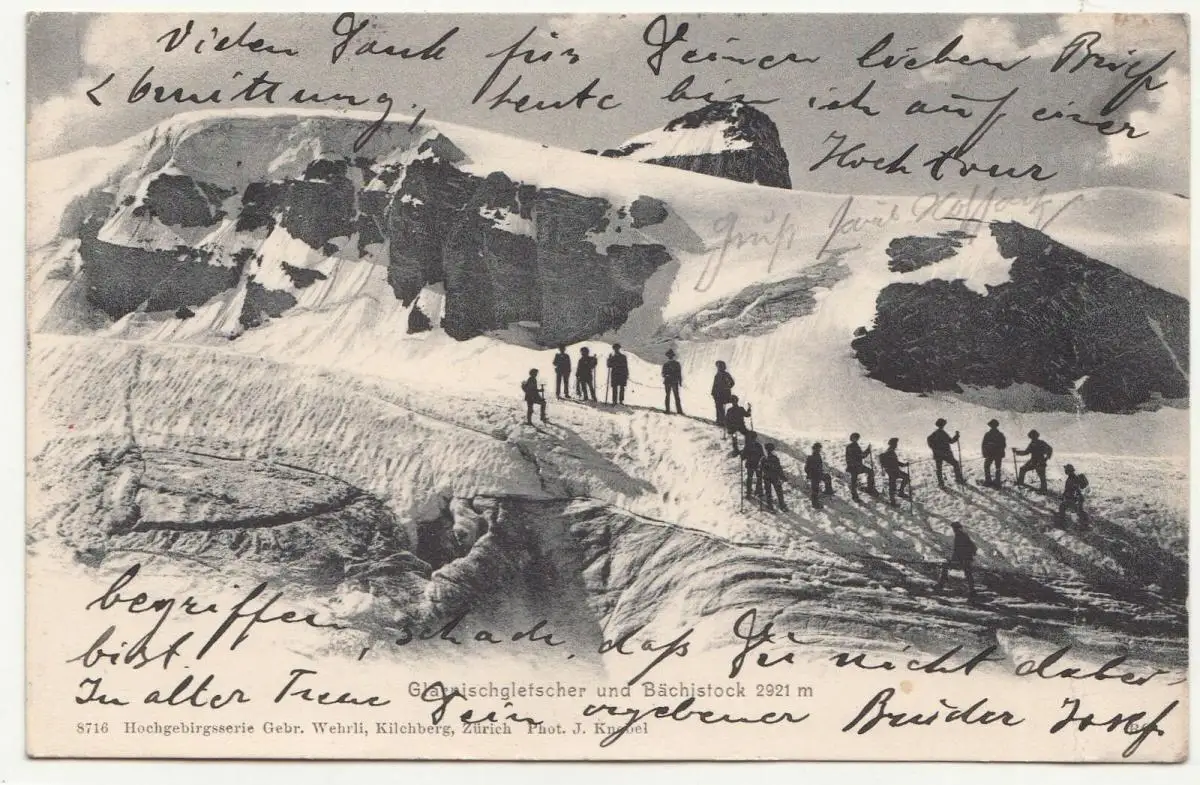 Vielen Dank für Deinen lieben Brief
Übmittung, heute bin ich auf einer
Hochtour
Gruß
begriffen, schade, daß Du nicht dabei
bist.
In alter Treue Dein ergebener Bruder Josef.
Glaernischgletscher und Bächistock 2921 m
8716 Hochgebirgsserie Gebr. Wehrli, Kilchberg, Zürich Phot. J. Knobel